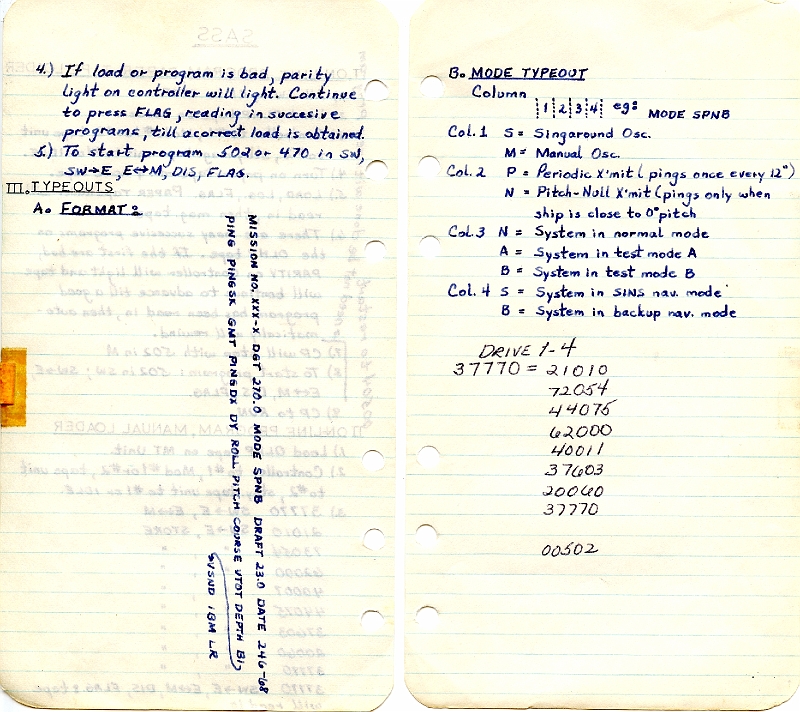 4.) If load or program is bad, parity
light on controller will light. Continue
to press FLAG, reading in succesive
programs, till acorrect load is obtained.
5.) To start program 502 or 470 in SW,
SW→E, E↔M, DIS, FLAG.
III. TYPEOUTS
A. FORMAT:
MISSION NO. XXX-X DGT 270.0 MODE SPNB DRAFT 23.0 DATE 246-68
PING PINGSK GMT PINGDX DY ROLL PITCH COURSE VTOT DEPTH BI
SVSND IBM LR
B. MODE TYPEOUT
Column |1|2|3|4| eg: MODE SPNB
Col. 1 S = Singaround Osc.
M = Manual Osc.
Col. 2 P = Periodic X'mit (pings once every 12")
N = Pitch-Null X'mit (pings only when
ship is close to 0° pitch
Col. 3 N = System in normal mode
A = System in test mode A
B = System in test mode B
Col. 4 S = System in SINS nav. mode
B = System in backup nav. mode
DRIVE 1-4
37770 = 21010
72054
44075
62000
40011
37603
20060
37770
00502